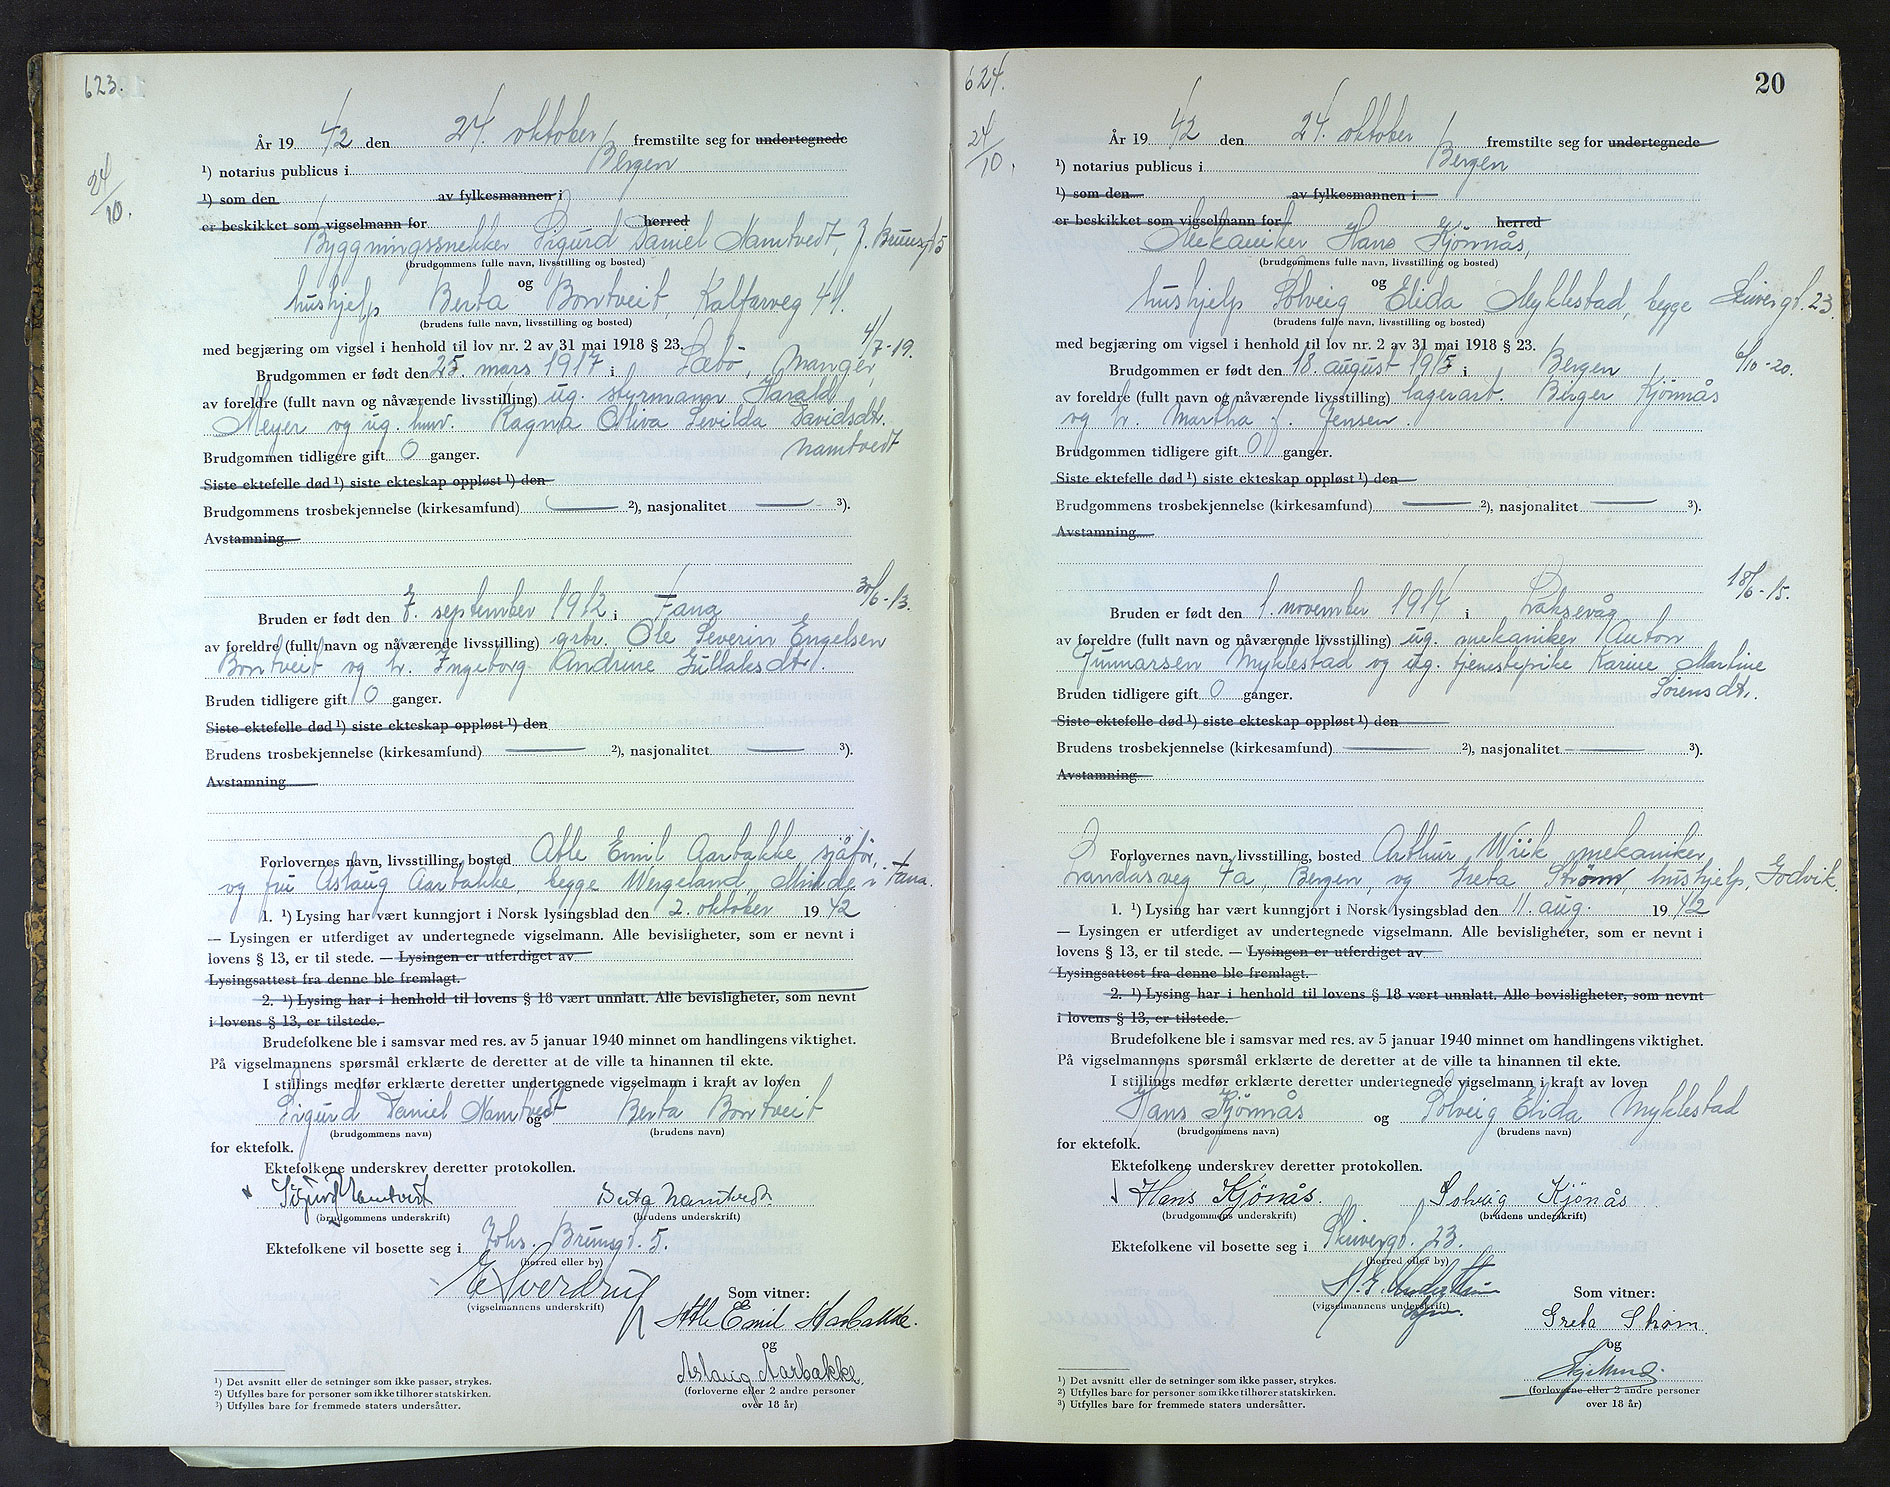 623.
År 19 42 den 24. oktober fremstilte seg for undertegnede
24/10.
¹) notarius publicus i Bergen
¹) som den av fylkesmannen i
er beskikket som vigselmann for herred
Byggningssnekker Sigurd Daniel Namtvedt, J. Brunsgt 5
(brudgommens fulle navn, livsstilling og bosted)
og
hushjelp Berta Bontveit, Kalfarveg 44.
(brudens fulle navn, livsstilling og bosted)
med begjæring om vigsel i henhold til lov nr. 2 av 31 mai 1918 § 23. 4/7-19.
Brudgommen er født den 25. mars 1917 i Sæbö, Manger,
av foreldre (fullt navn og nåværende livsstilling) ug. styrmann Harald
Meyer og ug. hmv. Ragna Oliva Sevilda Davidsdtr.
Namtvedt
Brudgommen tidligere gift 0 ganger.
Siste ektefelle død ¹) siste ekteskap oppløst ¹) den
Brudgommens trosbekjennelse (kirkesamfund) — ²), nasjonalitet — ³).
Avstamning
Bruden er født den 7. september 1912 i Fana 30/6-13.
av foreldre (fullt navn og nåværende livsstilling) grbr. Ole Severin Engelsen
Bontveit og h. Ingeborg Andrine Gullaksdtr.
Bruden tidligere gift 0 ganger.
Siste ektefelle død ¹) siste ekteskap oppløst ¹) den
Brudens trosbekjennelse (kirkesamfund) — ²), nasjonalitet — ³).
Avstamning
Forlovernes navn, livsstilling, bosted Atle Emil Aarbakke, sjåför,
og fru Aslaug Aarbakke, begge Wergeland, Minde i Fana.
1. ¹) Lysing har vært kunngjort i Norsk lysingsblad den 2. oktober 19 42
— Lysingen er utferdiget av undertegnede vigselmann. Alle bevisligheter, som er nevnt i
lovens § 13, er til stede. — Lysingen er utferdiget av
Lysingsattest fra denne ble fremlagt.
2. ¹) Lysing har i henhold til lovens § 18 vært unnlatt. Alle bevisligheter, som nevnt
i lovens § 13, er tilstede.
Brudefolkene ble i samsvar med res. av 5 januar 1940 minnet om handlingens viktighet.
På vigselmannens spørsmål erklærte de deretter at de ville ta hinannen til ekte.
I stillings medfør erklærte deretter undertegnede vigselmann i kraft av loven
Sigurd Daniel Namtvedt og Berta Bontveit
(brudgommens navn) (brudens navn)
for ektefolk.
Ektefolkene underskrev deretter protokollen.
Sigurd Namtvedt Berta Namtvedt
(brudgommens underskrift) (brudens underskrift)
Ektefolkene vil bosette seg i Johs. Brunsgt. 5.
(herred eller by)
(vigselmannens underskrift)
Som vitner:
Atle Emil Aarbakke.
og
Aslaug Aarbakke
(forloverne eller 2 andre personer
over 18 år)
¹) Det avsnitt eller de setninger som ikke passer, strykes.
²) Utfylles bare for personer som ikke tilhører statskirken.
³) Utfylles bare for fremmede staters undersåtter.
624.
20
År 19 42 den 24. oktober fremstilte seg for undertegnede
24/10.
¹) notarius publicus i Bergen
¹) som den av fylkesmannen i
er beskikket som vigselmann for herred
Mekaniker Hans Kjönnås,
(brudgommens fulle navn, livsstilling og bosted)
og
hushjelp Solveig Elida Myklestad, begge Skivergt. 23.
(brudens fulle navn, livsstilling og bosted)
med begjæring om vigsel i henhold til lov nr. 2 av 31 mai 1918 § 23.
Brudgommen er født den 18. august 1915 i Bergen 6/10-20.
av foreldre (fullt navn og nåværende livsstilling) lagerarb. Birger Kjönnås
og h. Martha f. Jensen.
Brudgommen tidligere gift 0 ganger.
Siste ektefelle død ¹) siste ekteskap oppløst ¹) den
Brudgommens trosbekjennelse (kirkesamfund) — ²), nasjonalitet — ³).
Avstamning
Bruden er født den 1. november 1914 i Laksevåg 18/6-15.
av foreldre (fullt navn og nåværende livsstilling) ug. mekaniker Anton
Gunnarsen Myklestad og ug. tjenestepike Karine Martine
Sörensdtr.
Bruden tidligere gift 0 ganger.
Siste ektefelle død ¹) siste ekteskap oppløst ¹) den
Brudens trosbekjennelse (kirkesamfund) — ²), nasjonalitet — ³).
Avstamning
Forlovernes navn, livsstilling, bosted Arthur Wiik mekaniker
Landåsveg 7a, Bergen, og Greta Strøm, hushjelp, Godvik.
1. ¹) Lysing har vært kunngjort i Norsk lysingsblad den 11. aug. 19 42
— Lysingen er utferdiget av undertegnede vigselmann. Alle bevisligheter, som er nevnt i
lovens § 13, er til stede. — Lysingen er utferdiget av
Lysingsattest fra denne ble fremlagt.
2. ¹) Lysing har i henhold til lovens § 18 vært unnlatt. Alle bevisligheter, som nevnt
i lovens § 13, er tilstede.
Brudefolkene ble i samsvar med res. av 5 januar 1940 minnet om handlingens viktighet.
På vigselmannens spørsmål erklærte de deretter at de ville ta hinannen til ekte.
I stillings medfør erklærte deretter undertegnede vigselmann i kraft av loven
Hans Kjönnås og Solveig Elida Myklestad
(brudgommens navn) (brudens navn)
for ektefolk.
Ektefolkene underskrev deretter protokollen.
Hans Kjönås. Solveig Kjönås
(brudgommens underskrift) (brudens underskrift)
Ektefolkene vil bosette seg i Skivergt. 23.
(herred eller by)
(vigselmannens underskrift)
Som vitner:
Greta Strøm
og
(forloverne eller 2 andre personer
over 18 år)
¹) Det avsnitt eller de setninger som ikke passer, strykes.
²) Utfylles bare for personer som ikke tilhører statskirken.
³) Utfylles bare for fremmede staters undersåtter.